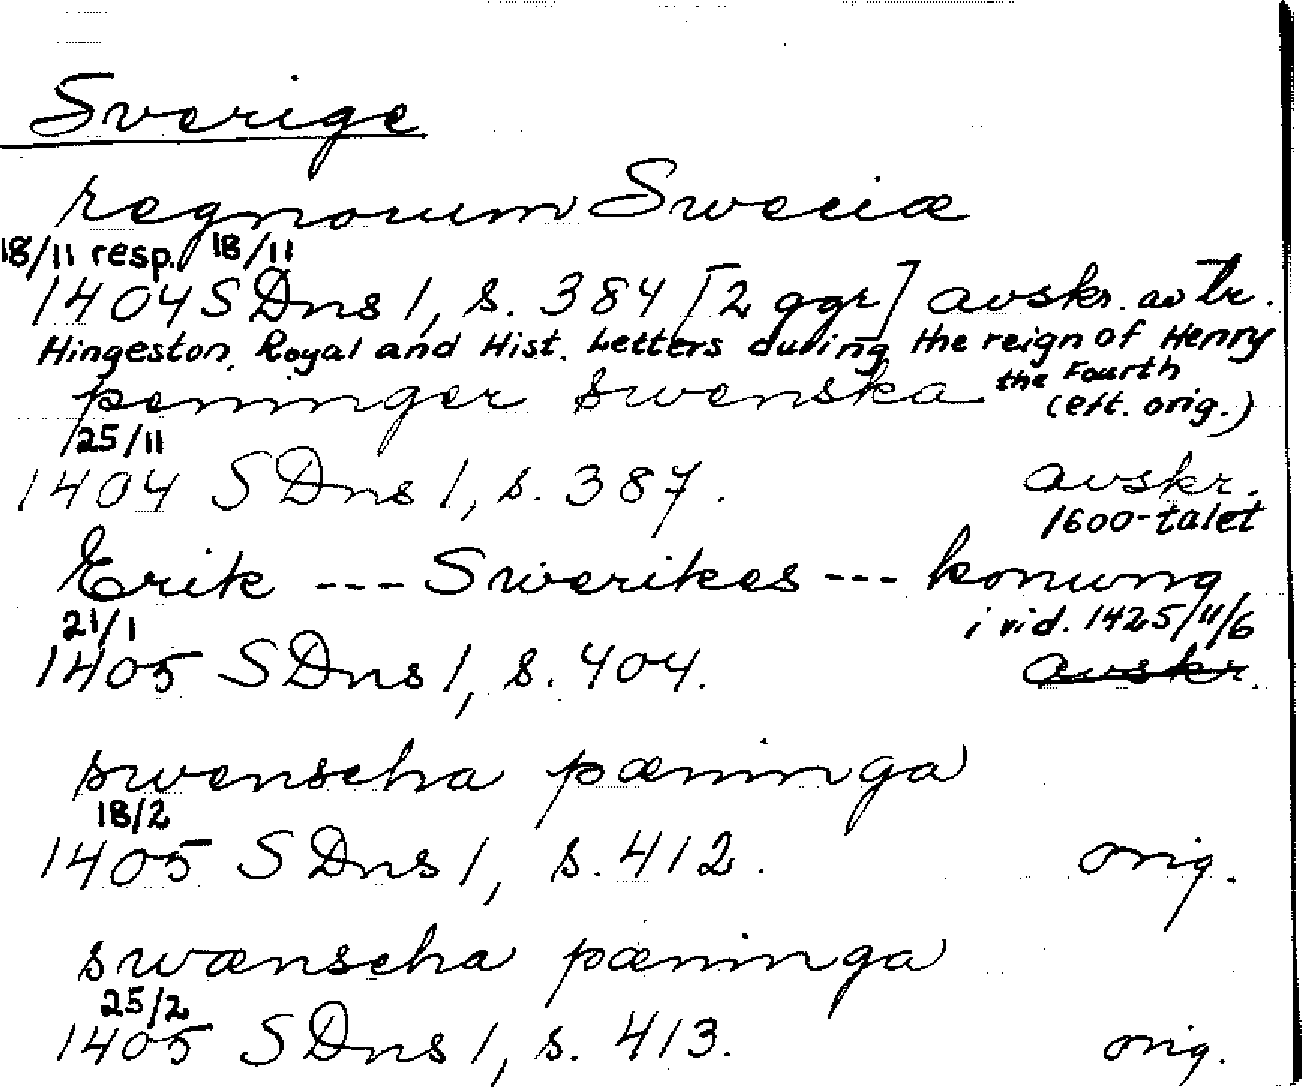 Sverige
regnorum Sweciæ
18/11 resp. 18/11
1404 SDns 1, s. 384 [2 ggr] avskr. av tr.
Hingeston, Royal and Hist. Letters during the reign of Henry
the Fourth
peninger swenska (eft. orig.)
25/11
1404 SDns 1, s. 387. avskr.
1600-talet
Erik --- Swerikes --- konung
21/1 i vid. 1425/11/6
1405 SDns 1, s. 404. avskr.
swenscha pæninga
18/2
1405 SDns 1, s. 412. orig.
swænscha pæninga
25/2
1405 SDns 1, s. 413. orig.